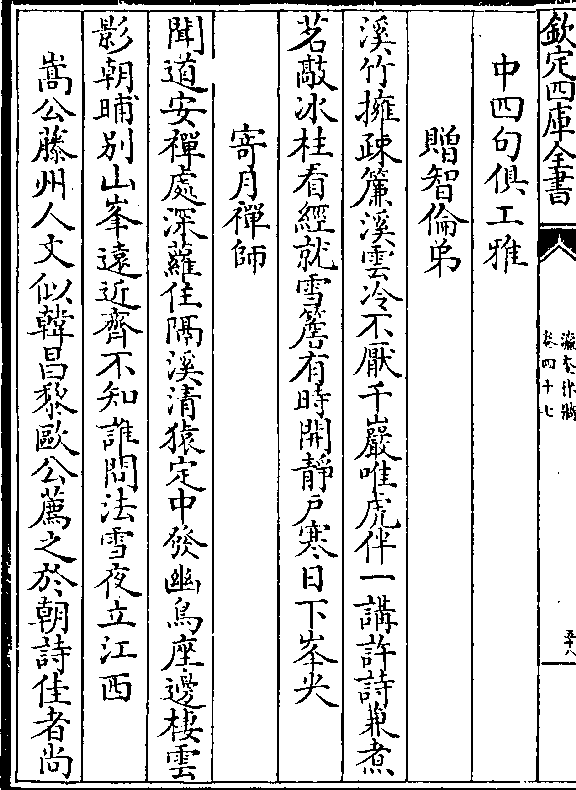 欽定四庫全書
瀛奎律髓
卷四十七
五十八
中四句俱工雅
贈智倫弟
溪竹擁疎簾溪雲冷不厭千巖唯虎伴一講許詩兼煮
茗敲冰柱看經就雪簷有時開靜戶寒日下峯尖
寄月禪師
聞道安禪處深蘿住隔溪清猿定中發幽鳥座邊棲雲
影朝晡別山峯遠近齊不知誰問法雪夜立江西
嵩公藤州人文似韓昌黎歐公薦之於朝詩佳者尚